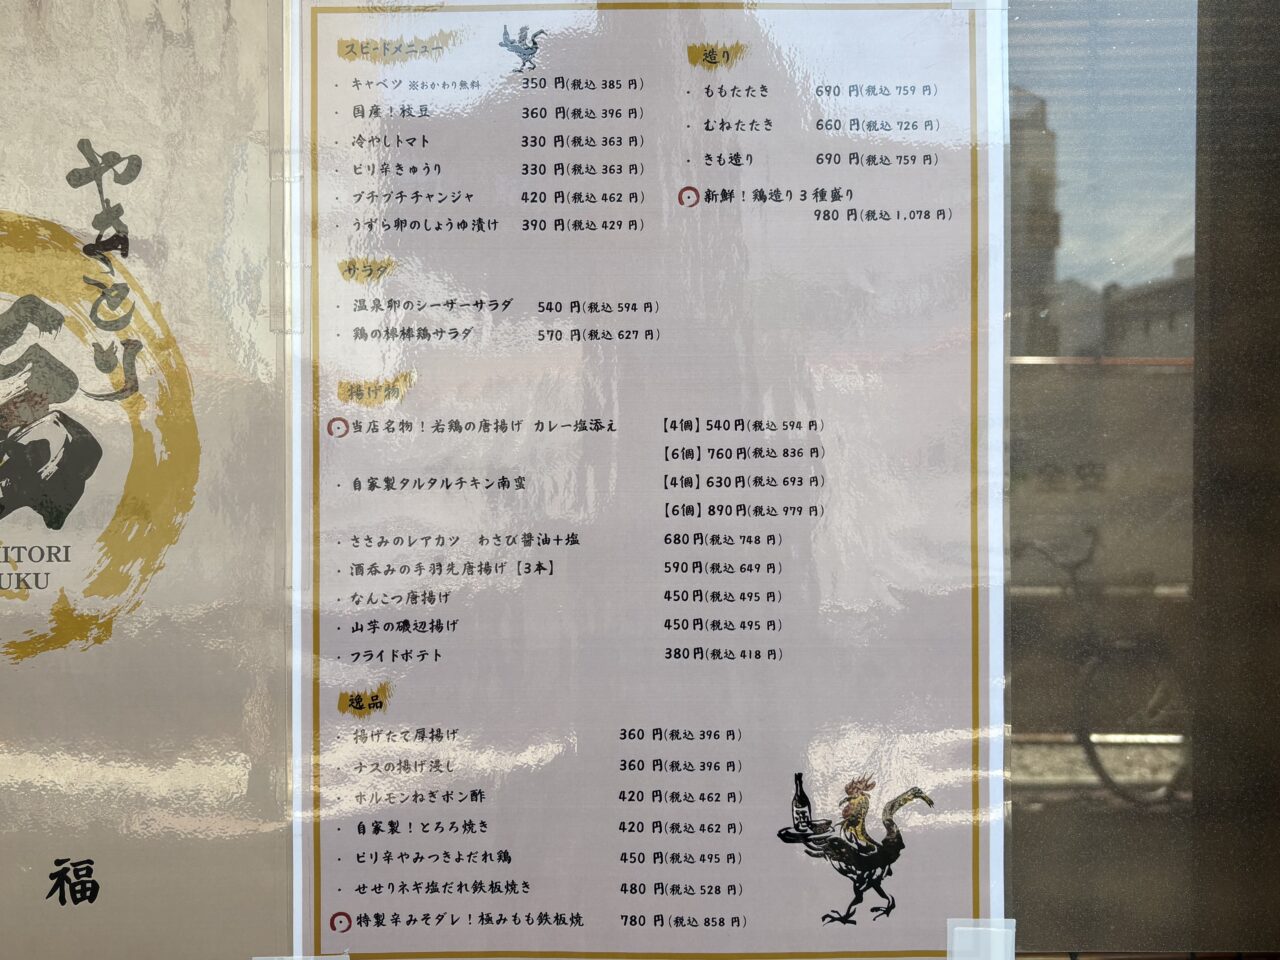 やきとり
HITORI
UKU
福
スピードメニュー
・ キャベツ ※おかわり無料 350 円(税込 385 円)
・ 国産！枝豆 360 円(税込 396 円)
・ 冷やしトマト 330 円(税込 363 円)
・ ピリ辛きゅうり 330 円(税込 363 円)
・ プチプチチャンジャ 420 円(税込 462 円)
・ うずら卵のしょうゆ漬け 390 円(税込 429 円)
サラダ
・ 温泉卵のシーザーサラダ 540 円(税込 594 円)
・ 鶏の棒棒鶏サラダ 570 円(税込 627 円)
揚げ物
・ 当店名物！若鶏の唐揚げ カレー塩添え 【4個】540円(税込 594 円)
【6個】760円(税込 836 円)
・ 自家製タルタルチキン南蛮 【4個】630円(税込 693 円)
【6個】890円(税込 979 円)
・ ささみのレアカツ わさび醤油＋塩 680円(税込 748 円)
・ 酒呑みの手羽先唐揚げ【3本】 590円(税込 649 円)
・ なんこつ唐揚げ 450円(税込 495 円)
・ 山芋の磯辺揚げ 450円(税込 495 円)
・ フライドポテト 380円(税込 418 円)
逸品
・ 揚げたて厚揚げ 360 円(税込 396 円)
・ ナスの揚げ浸し 360 円(税込 396 円)
・ ホルモンねぎポン酢 420 円(税込 462 円)
・ 自家製！とろろ焼き 420 円(税込 462 円)
・ ピリ辛やみつきよだれ鶏 450 円(税込 495 円)
・ せせりネギ塩だれ鉄板焼き 480 円(税込 528 円)
・ 特製辛みそダレ！極みもも鉄板焼 780 円(税込 858 円)
造り
・ ももたたき 690 円(税込 759 円)
・ むねたたき 660 円(税込 726 円)
・ きも造り 690 円(税込 759 円)
・ 新鮮！鶏造り３種盛り
980 円(税込 1,078 円)
酒